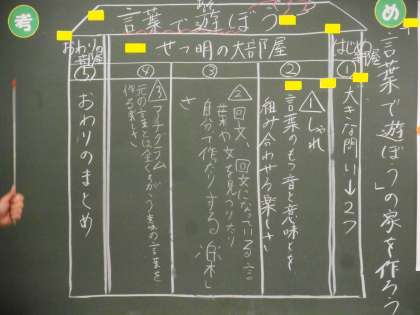 め
言葉で遊ぼう」の家を作ろう
考
言葉で遊ぼう
はじめ
部屋
せつ明の大部屋
おわりの
部屋
①
大きな問い→2つ
②
1 しゃれ
言葉のもつ音と意味とを
組み合わせる楽しさ
③
2 回文、回文になっている言
葉や文を見つけたり
自分で作たりする楽し
さ
④
3 アナグラム
元の言葉とは全くちがう意味の言葉を
作る楽しさ
⑤
おわりのまとめ